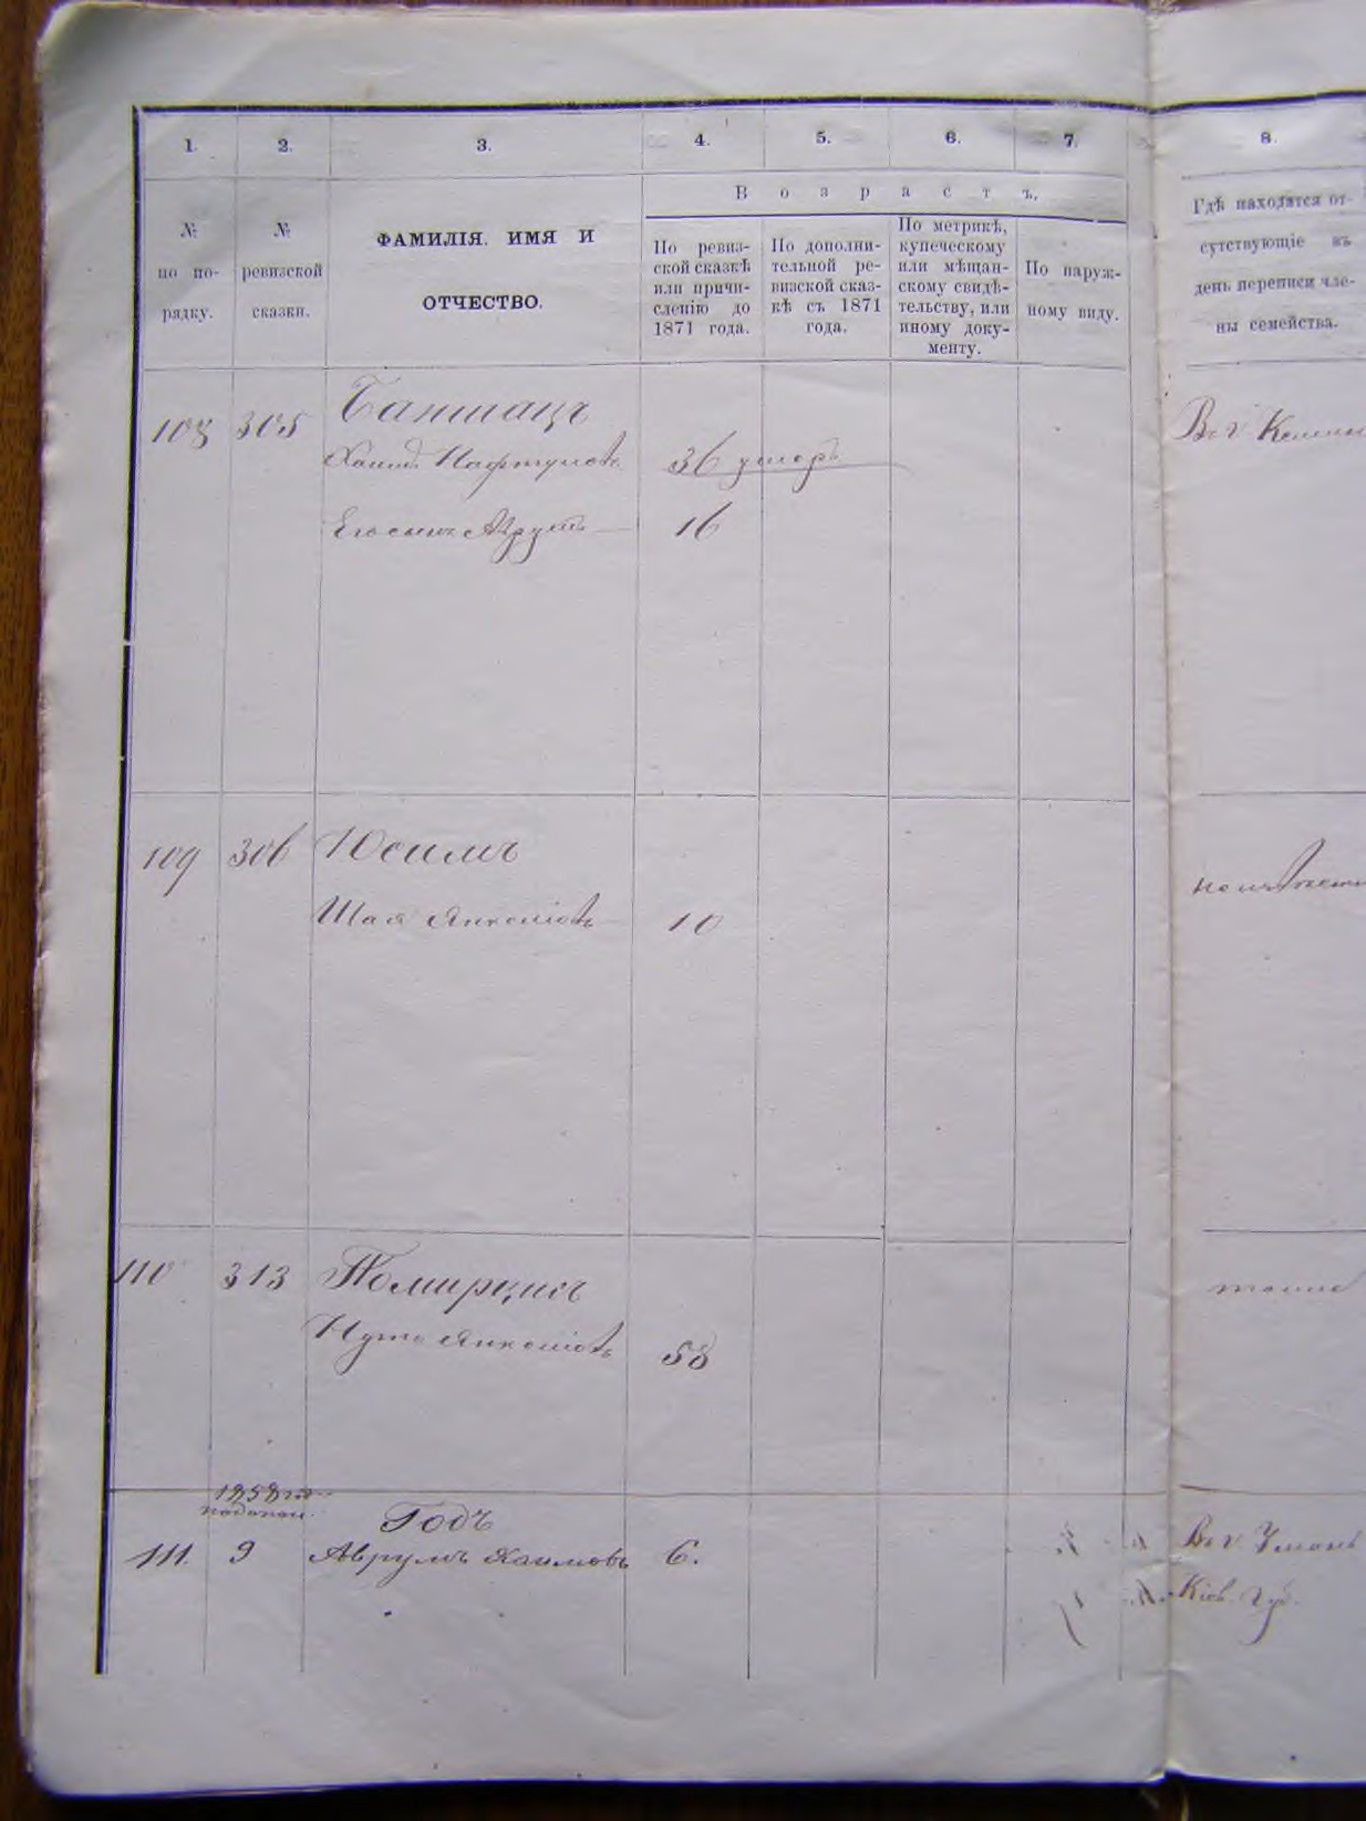 1. 2. 3. 4. 5. 6. 7. 8.
№
по по-
рядку.
№
ревизской
сказки.
ФАМИЛІЯ. ИМЯ И
ОТЧЕСТВО.
Возрастъ.
По ревиз-
ской сказкѣ
или причи-
сленію до
1871 года.
По дополни-
тельной ре-
визской сказ-
кѣ съ 1871
года.
По метрикѣ,
купеческому
или мѣщан-
скому свидѣ-
тельству, или
иному доку-
менту.
По наруж-
ному виду.
Гдѣ находятся от-
сутствующіе въ
день переписи чле-
ны семейства.
108 305
Хаимъ Нафтуловъ 36 умеръ
Его сынъ Аврумъ 16
Въ г.
109 306 Юсимъ
Шая Янкеліовъ 10
110 313 Помирчикъ
Нута Янкеліовъ 58
тоже
1858 год
111. 9 Годъ
Аврумъ Хаимовъ 6.
Въ г. Умани
Кіев. губ.